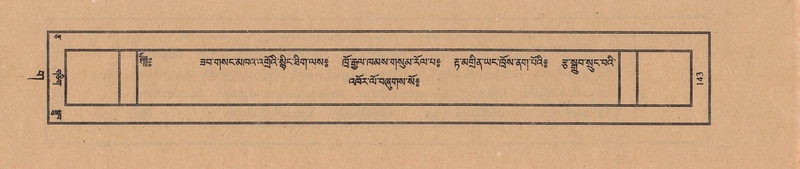 ཟབ་གསང་མཁའ་འགྲོའི་སྙིང་ཐིག་ལས༔ ཁྲོ་རྒྱལ་ཁམས་གསུམ་རོལ་པ༔ རྟ་མགྲིན་ཡང་ཁྲོས་ནག་པོའི༔ རྩ་སྒྲུབ་སྲུང་བའི་
འཁོར་ལོ་བཞུགས་སོ༔
143